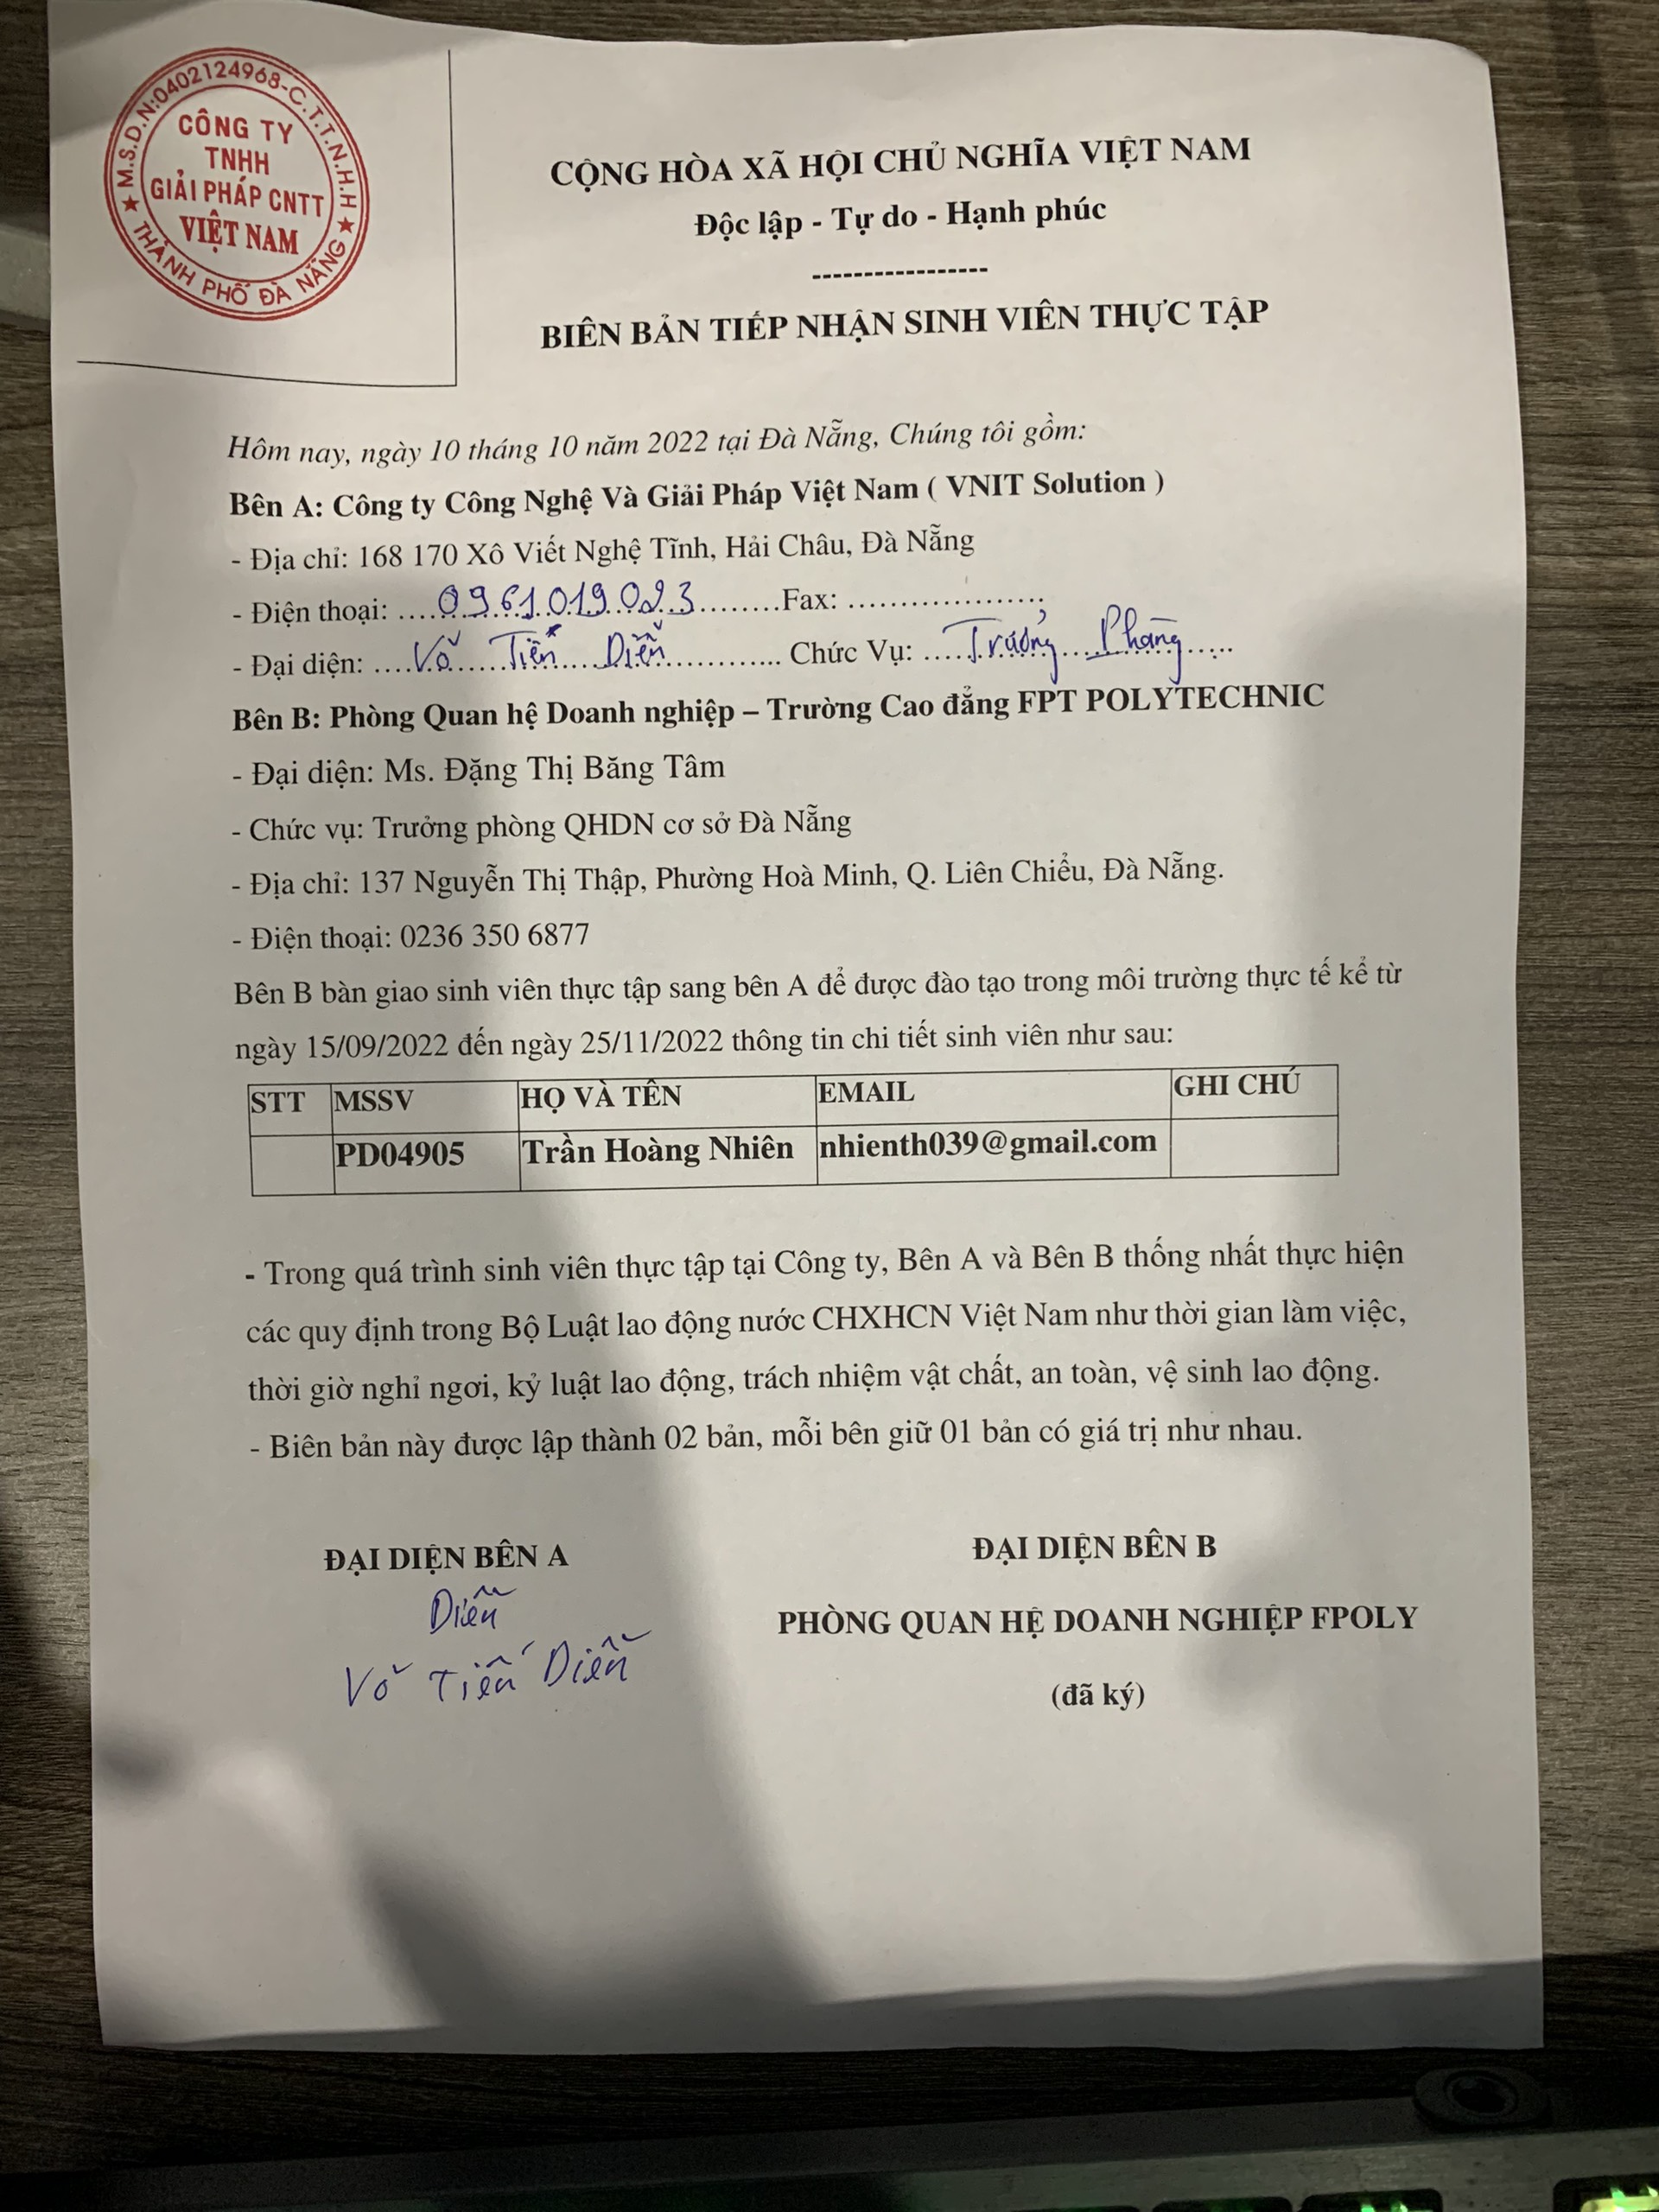 M.S.D.N:0402124968-C.T.T.N.H.H
CÔNG TY
TNHH
GIẢI PHÁP CNTT
VIỆT NAM
THÀNH PHỐ ĐÀ NẴNG
CỘNG HÒA XÃ HỘI CHỦ NGHĨA VIỆT NAM
Độc lập - Tự do - Hạnh phúc
-----------------
BIÊN BẢN TIẾP NHẬN SINH VIÊN THỰC TẬP
Hôm nay, ngày 10 tháng 10 năm 2022 tại Đà Nẵng, Chúng tôi gồm:
Bên A: Công ty Công Nghệ Và Giải Pháp Việt Nam ( VNIT Solution )
- Địa chỉ: 168 170 Xô Viết Nghệ Tĩnh, Hải Châu, Đà Nẵng
- Điện thoại: ....0961019023.........Fax: ....................
- Đại diện: ....Võ Tiến Diễn............. Chức Vụ: .....Trưởng Phòng.....
Bên B: Phòng Quan hệ Doanh nghiệp – Trường Cao đẳng FPT POLYTECHNIC
- Đại diện: Ms. Đặng Thị Băng Tâm
- Chức vụ: Trưởng phòng QHDN cơ sở Đà Nẵng
- Địa chỉ: 137 Nguyễn Thị Thập, Phường Hoà Minh, Q. Liên Chiểu, Đà Nẵng.
- Điện thoại: 0236 350 6877
Bên B bàn giao sinh viên thực tập sang bên A để được đào tạo trong môi trường thực tế kể từ
ngày 15/09/2022 đến ngày 25/11/2022 thông tin chi tiết sinh viên như sau:
STT MSSV HỌ VÀ TÊN EMAIL GHI CHÚ
PD04905 Trần Hoàng Nhiên nhienth039@gmail.com
- Trong quá trình sinh viên thực tập tại Công ty, Bên A và Bên B thống nhất thực hiện
các quy định trong Bộ Luật lao động nước CHXHCN Việt Nam như thời gian làm việc,
thời giờ nghỉ ngơi, kỷ luật lao động, trách nhiệm vật chất, an toàn, vệ sinh lao động.
- Biên bản này được lập thành 02 bản, mỗi bên giữ 01 bản có giá trị như nhau.
ĐẠI DIỆN BÊN A
Diễn
Võ Tiến Diễn
ĐẠI DIỆN BÊN B
PHÒNG QUAN HỆ DOANH NGHIỆP FPOLY
(đã ký)